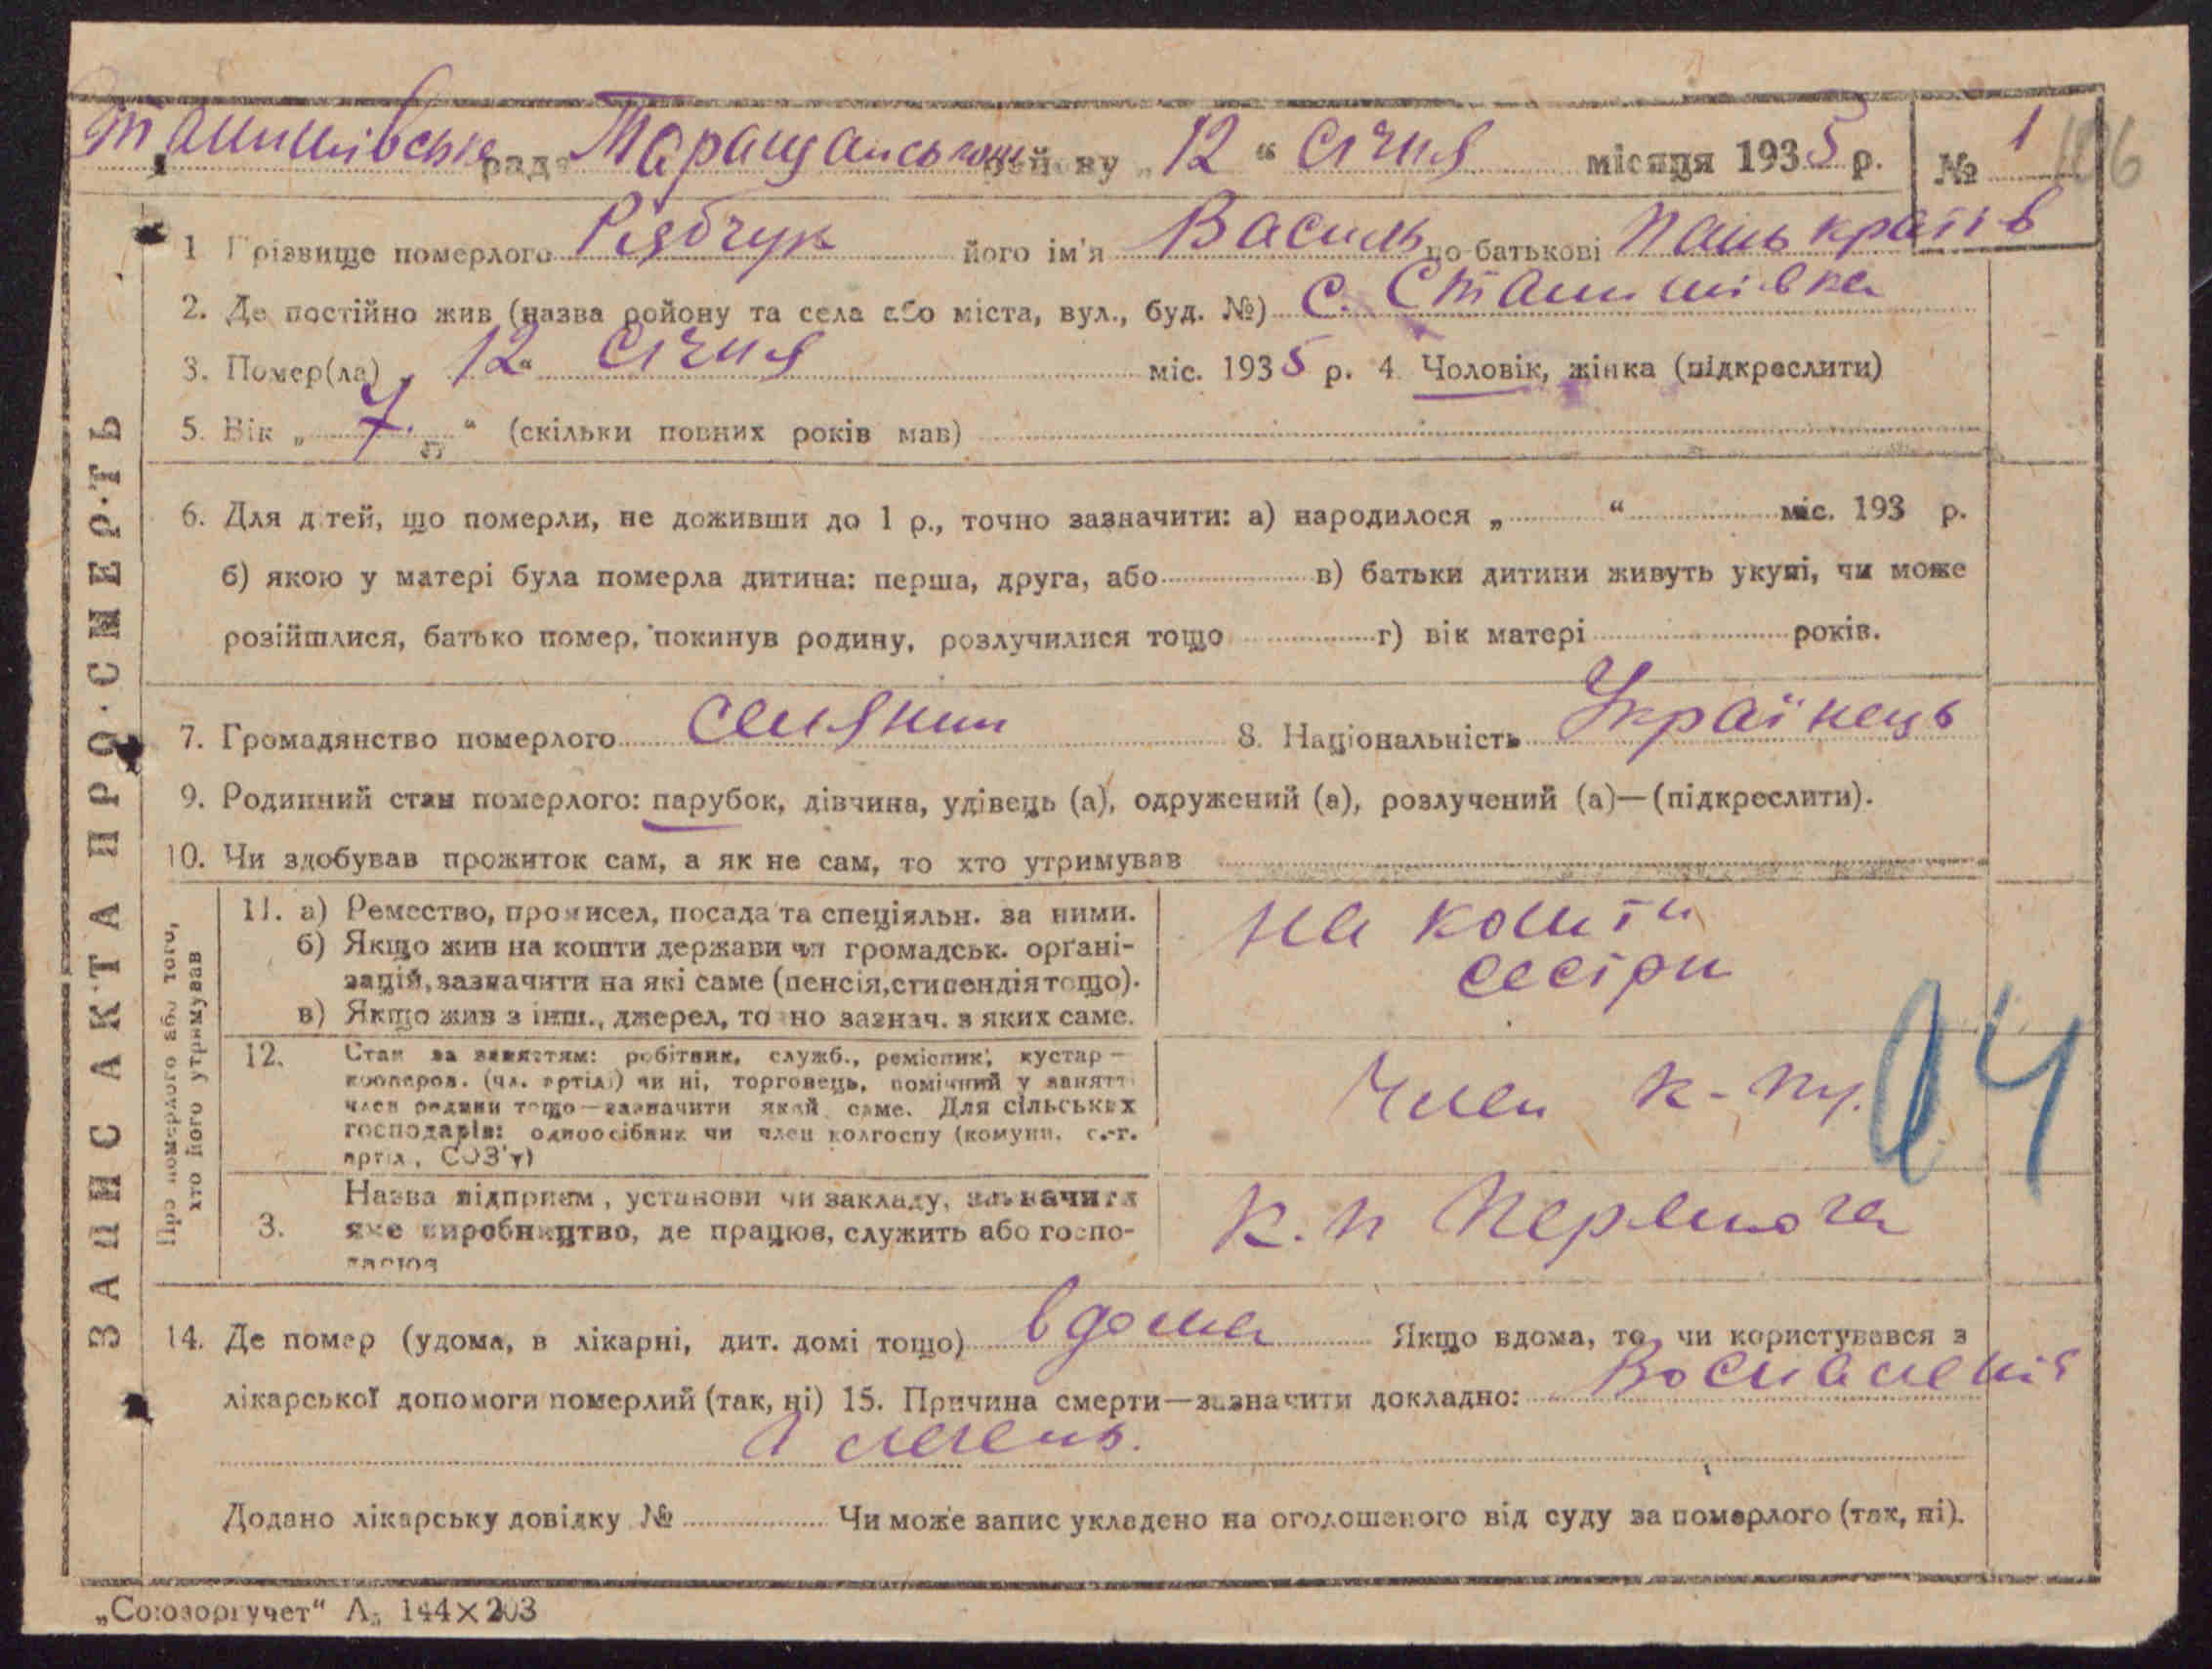 Станишівська рада Таращанського району „12“ Січня місяця 1935 р. № 1 106
1 Прізвище померлого Рябчук його ім'я Василь по-батькові Панькратів
2. Де постійно жив (назва району та села або міста, вул., буд. №) С. Станишівка
3. Помер(ла) „12“ Січня міс. 1935 р. 4. Чоловік, жінка (підкреслити)
5. Вік „ 7. “ (скільки повних років мав)
6. Для дітей, що померли, не доживши до 1 р., точно зазначити: а) народилося „ “ міс. 193 р.
б) якою у матері була померла дитина: перша, друга, або в) батьки дитини живуть укупі, чи може
розійшлися, батько помер, покинув родину, розлучилися тощо г) вік матері років.
7. Громадянство померлого селянин 8. Національність Українець
9. Родинний стан померлого: парубок, дівчина, удівець (а), одружений (а), розлучений (а)—(підкреслити).
10. Чи здобував прожиток сам, а як не сам, то хто утримував
ЗАПИС АКТА ПРО СМЕРТЬ
Про померлого або того,
хто його утримував
11. а) Ремество, промисел, посада та спеціяльн. за ними.
б) Якщо жив на кошти держави чи громадськ. орґані-
зацій, зазначити на які саме (пенсія, стипендія тощо).
в) Якщо жив з інш., джерел, точно зазнач. з яких саме.
на кошти
сестри
12. Стан за заняттям: робітник, служб., ремісник, кустар —
кооперов. (чл. артілі) чи ні, торговець, помічний у занятті
член родини тощо—зазначити який саме. Для сільських
господарів: одноосібник чи член колгоспу (комуни, с.-г.
артіл, СОЗ'у)
Член к-пу.
04
3. Назва підприєм, установи чи закладу, зазначити
яке виробництво, де працює, служить або госпо-
дарює
К.п Перемога
14. Де помер (удома, в лікарні, дит. домі тощо) вдома Якщо вдома, то чи користувався з
лікарської допомоги померлий (так, ні) 15. Причина смерти—зазначити докладно: Воспаленія
легень.
Додано лікарську довідку № Чи може запис укладено на оголошеного від суду за померлого (так, ні).
„Союзоргучет“ Л. 144×203